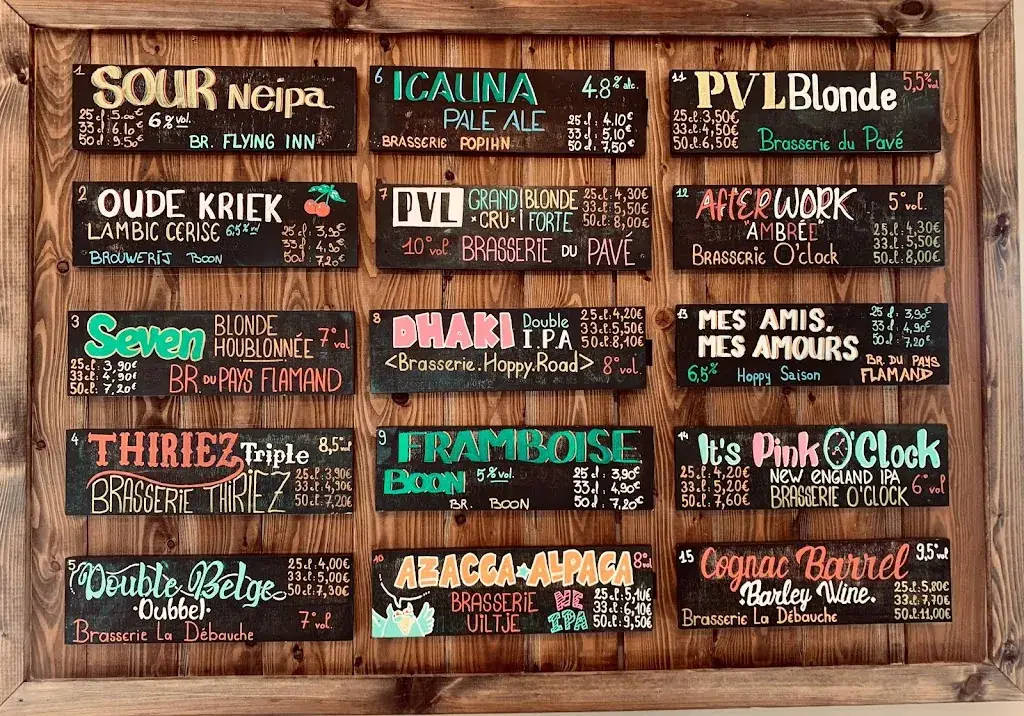 1
SOUR NEIPA
25 cl: 5.00€
33 cl: 6.10€ 6% vol.
50 cl: 9.50€
BR. FLYING INN
2
OUDE KRIEK
LAMBIC CERISE 6.5% vol
25 cl: 3,90€
33 cl: 4,90€
50 cl: 7,20€
BROUWERIJ BOON
3
Seven
BLONDE
HOUBLONNÉE 7° vol
25 cl: 3,90€
33 cl: 4,90€
50 cl: 7,20€
BR. DU PAYS FLAMAND
4
THIRIEZ Triple 8,5° vol
BRASSERIE THIRIEZ
25 cl: 3,90€
33 cl: 4,90€
50 cl: 7,20€
5
Double Belge
·Dubbel·
Brasserie La Débauche
25 cl: 4,00€
33 cl: 5,00€
50 cl: 7,30€
7° vol.
6
ICAUNA 4.8% alc.
PALE ALE
BRASSERIE POPIHN
25 cl: 4.10€
33 cl: 5,10€
50 cl: 7,50€
7
PVL GRAND BLONDE
·CRU· FORTE
25 cl: 4,30€
33 cl: 5,50€
50 cl: 8,00€
10° vol. BRASSERIE DU PAVÉ
8
DHAKI Double
I.PA
25 cl: 4,20€
33 cl: 5,50€
50 cl: 8,10€
<Brasserie.Hoppy.Road> 8° vol.
9
FRAMBOISE
BOON 5% vol.
BR. BOON
25 cl: 3,90€
33 cl: 4,90€
50 cl: 7,20€
10
AZACCA ALPACA 8° vol
BRASSERIE NE
UILTJE IPA
25 cl: 5,10€
33 cl: 6,10€
50 cl: 9,50€
11
PVL Blonde 5,5% vol
25 cl: 3,50€
33 cl: 4,50€
50 cl: 6,50€
Brasserie du Pavé
12
AfTER WORK 5° vol.
"AMBRÉE"
Brasserie O'clock
25 cl: 4,30€
33 cl: 5,50€
50 cl: 8,00€
13
MES AMIS,
MES AMOURS
25 cl: 3,90€
33 cl: 4,90€
50 cl: 7,20€
6,5% Hoppy Saison
BR. DU PAYS
FLAMAND
14
It's Pink O'Clock
25 cl: 4,20€
33 cl: 5,20€
50 cl: 7,60€
NEW ENGLAND IPA
BRASSERIE O'CLOCK
6° vol
15
Cognac Barrel 9,5% vol
Barley Wine.
Brasserie La Débauche
25 cl: 5,80€
33 cl: 7,70€
50 cl: 11,00€